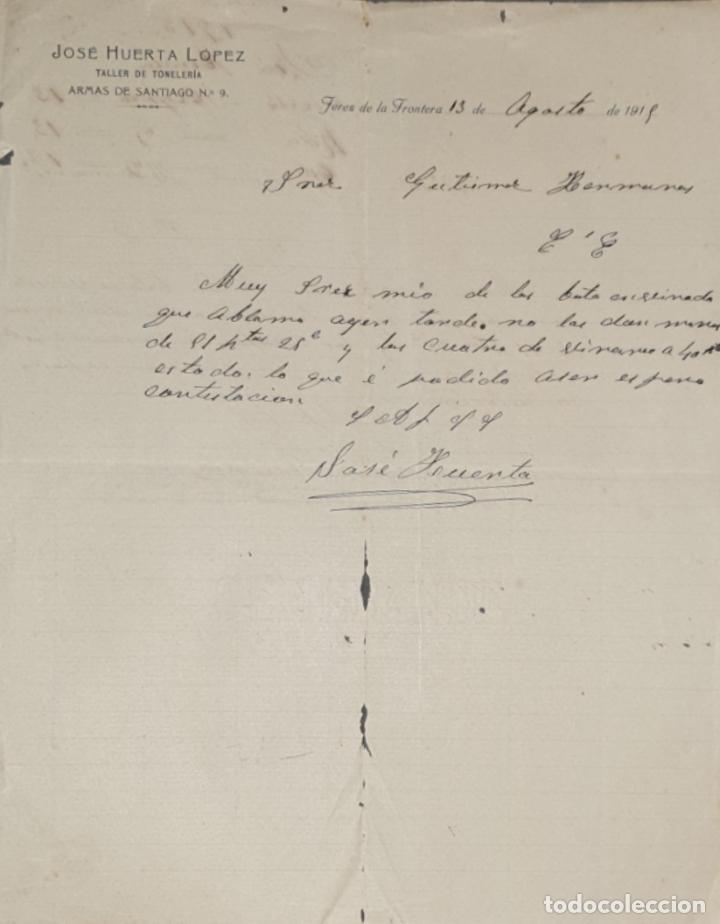 JOSÉ HUERTA LÓPEZ
TALLER DE TONELERÍA
ARMAS DE SANTIAGO N.º 9.
Jerez de la Frontera 13 de Agosto de 1915
Sres Gutierrez Hermanos
Muy Sres mio de las bota
que Ablamo ayer tarde. no las dan menos
de 51 ptas 25c y las cuatro de vinagre a 40
estado. lo que é podido aser espero
contestacion
José Huerta
todocoleccion